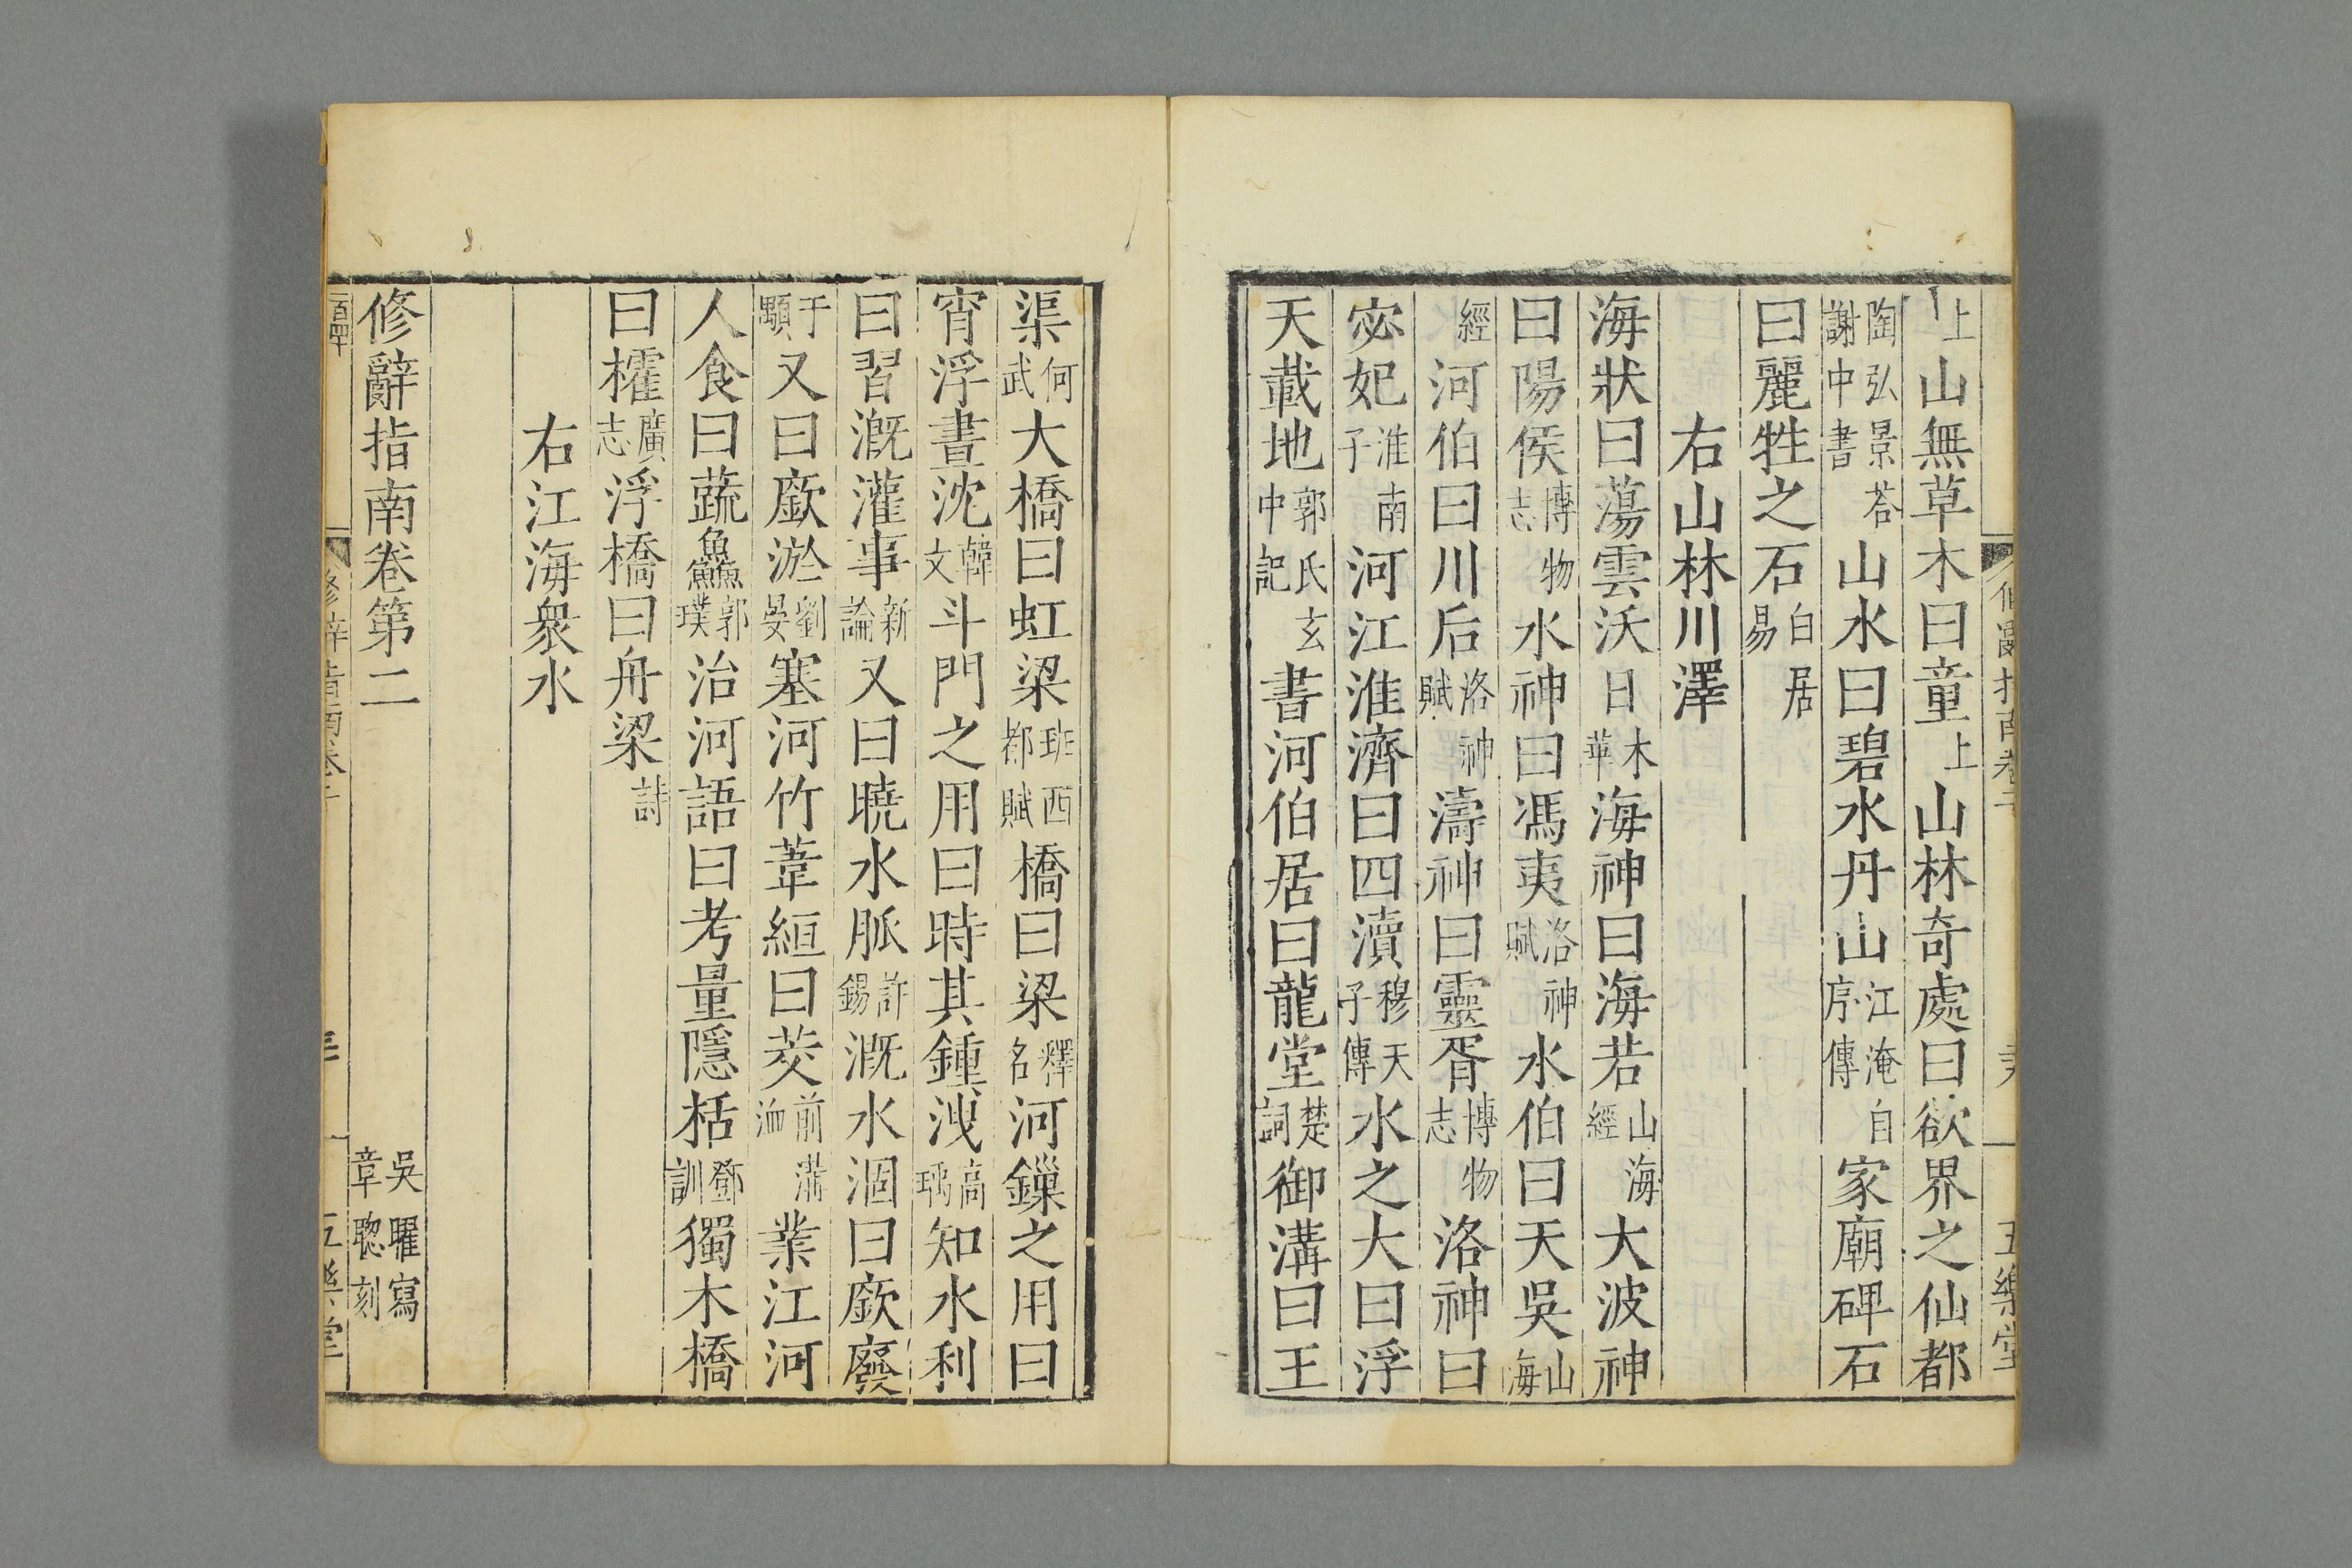 上山無草木曰童上山林奇處曰欲界之仙都
陶弘景荅謝中書山水曰碧水丹山江淹自序傳家廟碑石
曰麗牲之石白居易
右山林川澤
海狀曰蕩雲沃日木華海神曰海若山海經大波神
曰陽侯博物志水神曰馮夷洛神賦水伯曰天吳山海
經河伯曰川后洛神賦濤神曰靈胥博物志洛神曰
宓妃淮南子河江淮濟曰四瀆穆天子傳水之大曰浮
天載地郭氏玄中記書河伯居曰龍堂楚詞御溝曰王
渠何武大橋曰虹梁班西都賦橋曰梁釋名河鏁之用曰
宵浮晝沈韓文斗門之用曰時其鍾洩高瑀知水利
曰習溉灌事新論又曰曉水脈許鍚溉水涸曰廞廢
于頔又曰廞淤劉晏塞河竹葦縆曰茭前溝洫業江河
人食曰蔬鱻郭璞治河語曰考量隱栝鄧訓獨木橋
曰欋廣志浮橋曰舟梁詩
右江海衆水
修辭指南卷第二 吳曜寫 章聰刻